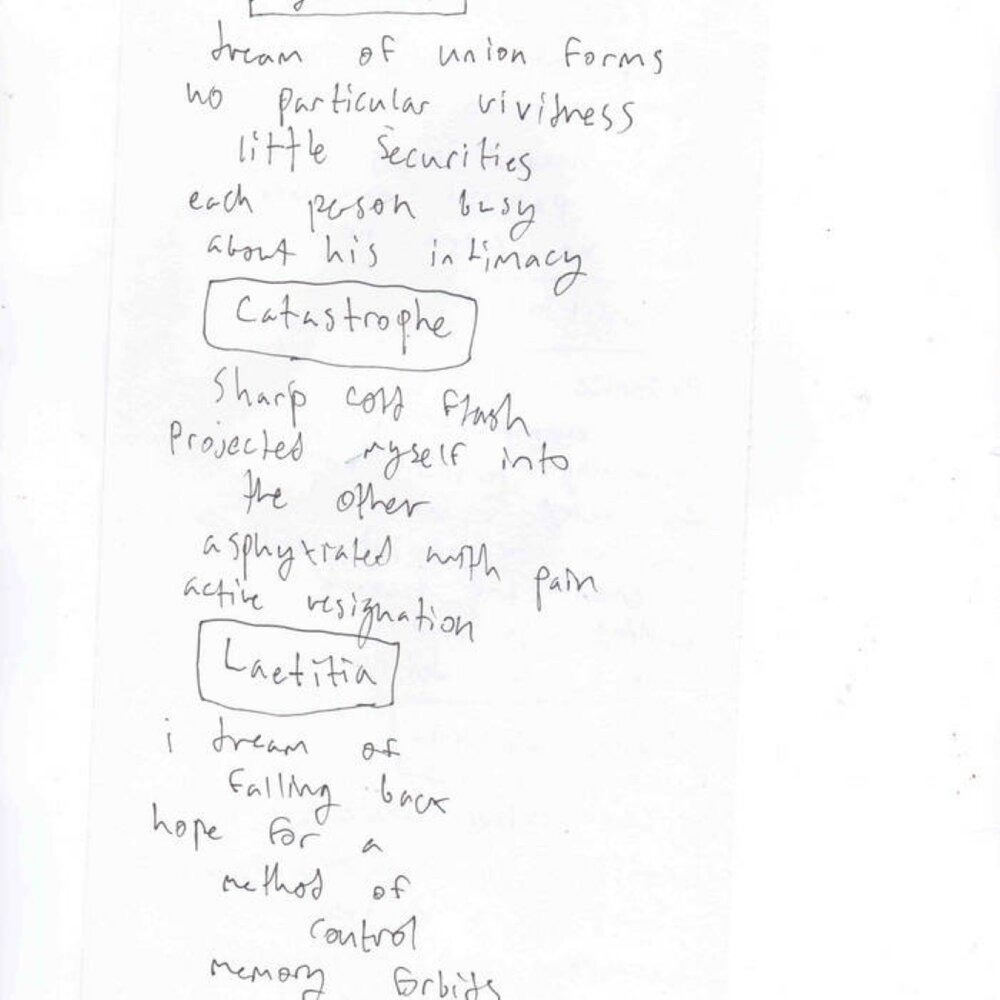 dream of union forms
no particular vividness
little securities
each person busy
about his intimacy
Catastrophe
Sharp cold flash
Projected myself into
the other
asphyxiated with pain
active resignation
Laetitia
i dream of
falling back
hope for a
method of
control
memory forbids